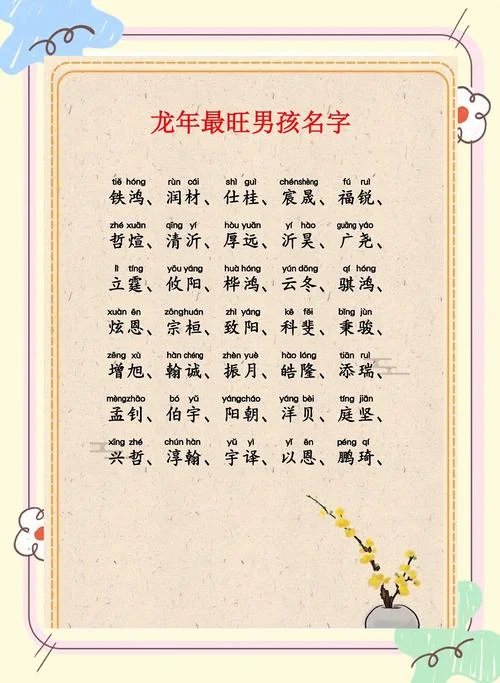 龙年最旺男孩名字
tiě hóng rùn cái shì guì chénshèng fú ruì
铁鸿、润材、仕桂、宸晟、福锐、
zhé xuān qīng yí hòu yuǎn yí hào guǎng yáo
哲煊、清沂、厚远、沂昊、广尧、
lì tíng yōu yáng huà hóng yún dōng qí hóng
立霆、攸阳、桦鸿、云冬、骐鸿、
xuàn ēn zōnghuán zhì yáng kē fěi bǐng jùn
炫恩、宗桓、致阳、科斐、秉骏、
zēng xù hàn chéng zhèn yuè hào lóng tiān ruì
增旭、翰诚、振月、皓隆、添瑞、
mèngzhāo bó yǔ yángcháo yáng bèi tíng jiān
孟钊、伯宇、阳朝、洋贝、庭坚、
xīng zhé chún hàn yǔ yì yǐ ēn péng qí
兴哲、淳翰、宇译、以恩、鹏琦、